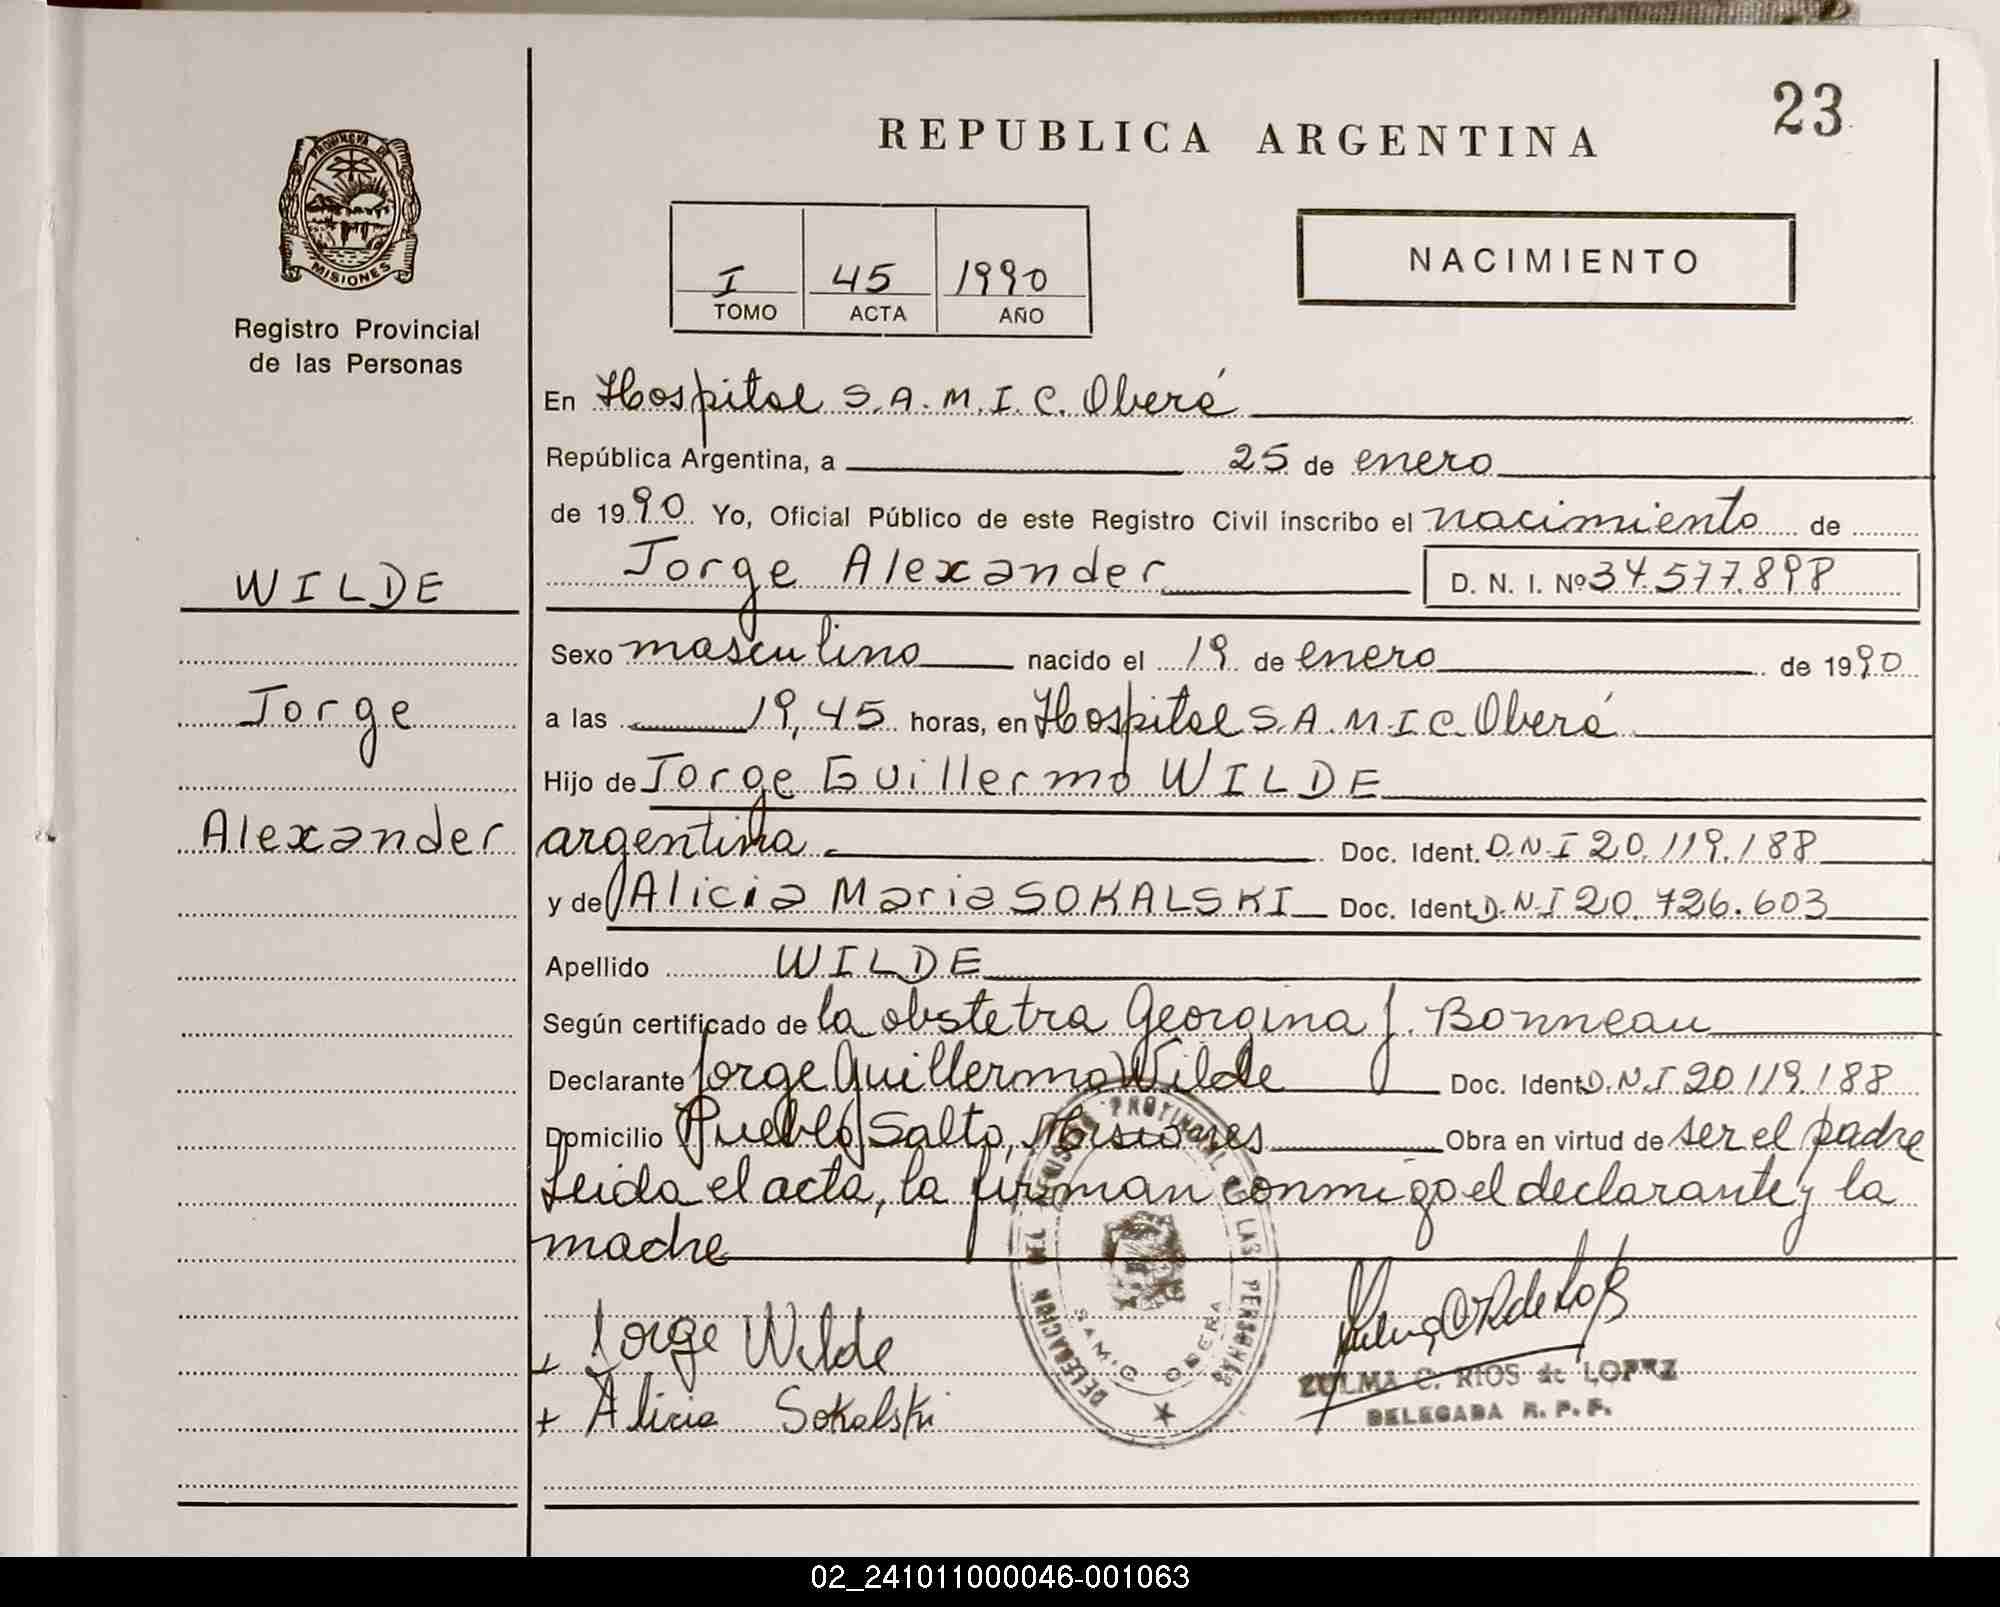 23
REPUBLICA ARGENTINA
PROVINCIA DE
MISIONES
Registro Provincial
de las Personas
NACIMIENTO
I 45 1990
TOMO ACTA AÑO
En Hospital S.A.M.I.C. Oberá
República Argentina, a 25 de enero
de 1990 Yo, Oficial Público de este Registro Civil inscribo el nacimiento de
Jorge Alexander D. N. I. Nº 34.577.898
WILDE
Jorge
Alexander
Sexo masculino nacido el 19 de enero de 1990
a las 19,45 horas, en Hospital S.A.M.I.C. Oberá
Hijo de Jorge Guillermo WILDE
argentina Doc. Ident. D.N.I 20.119.188
y de Alicia Maria SOKALSKI Doc. Ident. D.N.I 20.726.603
Apellido WILDE
Según certificado de la obstetra Georgina J. Bonneau
Declarante Jorge Guillermo Wilde Doc. Ident. D.N.I 20.119.188
Domicilio Pueblo Salto, Misiones Obra en virtud de ser el padre
Leida el acta, la firman conmigo el declarante y la
madre
+ Jorge Wilde
+ Alicia Sokalski
DELEGACION DEL REGISTRO PROVINCIAL DE LAS PERSONAS
SAMIC OBERA
ZULMA C. RIOS de LOPEZ
DELEGADA R. P. P.
02_241011000046-001063